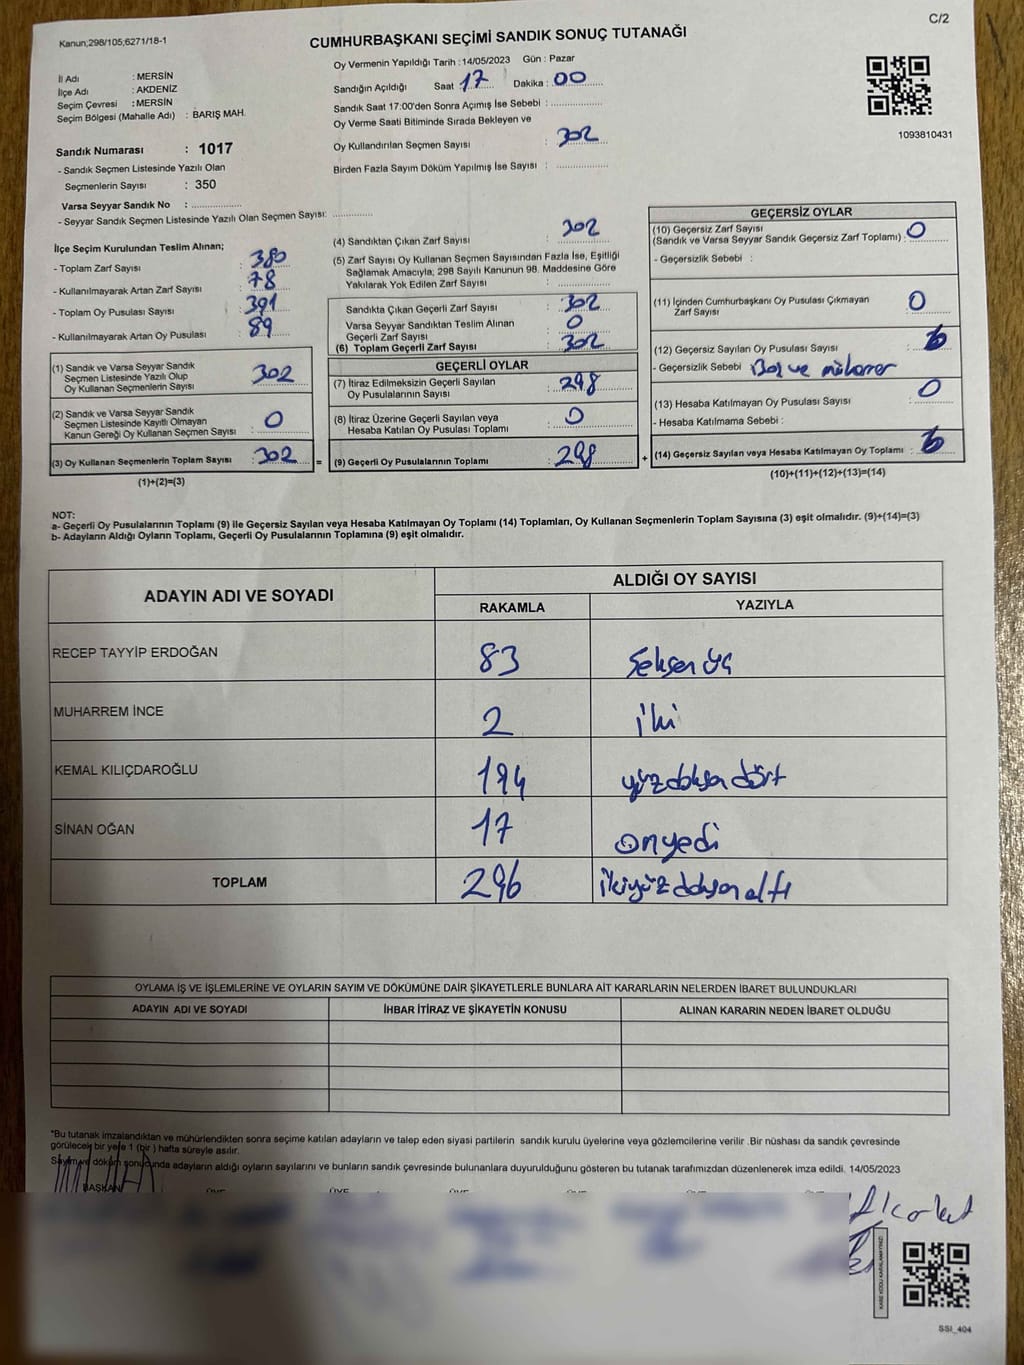 C/2
Kanun;298/105;6271/18-1
CUMHURBAŞKANI SEÇİMİ SANDIK SONUÇ TUTANAĞI
İl Adı : MERSİN
İlçe Adı : AKDENİZ
Seçim Çevresi : MERSİN
Seçim Bölgesi (Mahalle Adı) : BARIŞ MAH.
Sandık Numarası : 1017
- Sandık Seçmen Listesinde Yazılı Olan
Seçmenlerin Sayısı : 350
Varsa Seyyar Sandık No : ..................
- Seyyar Sandık Seçmen Listesinde Yazılı Olan Seçmen Sayısı: ..............
Oy Vermenin Yapıldığı Tarih : 14/05/2023 Gün : Pazar
Sandığın Açıldığı Saat 17 Dakika : 00
Sandık Saat 17:00'den Sonra Açımış İse Sebebi : ..................
Oy Verme Saati Bitiminde Sırada Bekleyen ve
Oy Kullandırılan Seçmen Sayısı : 302
Birden Fazla Sayım Döküm Yapılmış İse Sayısı : ..................
1093810431
İlçe Seçim Kurulundan Teslim Alınan;
- Toplam Zarf Sayısı : 380
- Kullanılmayarak Artan Zarf Sayısı : 78
- Toplam Oy Pusulası Sayısı : 391
- Kullanılmayarak Artan Oy Pusulası : 89
(1) Sandık ve Varsa Seyyar Sandık
Seçmen Listesinde Yazılı Olup
Oy Kullanan Seçmenlerin Sayısı : 302
(2) Sandık ve Varsa Seyyar Sandık
Seçmen Listesinde Kayıtlı Olmayan
Kanun Gereği Oy Kullanan Seçmen Sayısı : 0
(3) Oy Kullanan Seçmenlerin Toplam Sayısı : 302 =
(1)+(2)=(3)
(4) Sandıktan Çıkan Zarf Sayısı : 302
(5) Zarf Sayısı Oy Kullanan Seçmen Sayısından Fazla İse, Eşitliği
Sağlamak Amacıyla; 298 Sayılı Kanunun 98. Maddesine Göre
Yakılarak Yok Edilen Zarf Sayısı : ..................
Sandıkta Çıkan Geçerli Zarf Sayısı : 302
Varsa Seyyar Sandıktan Teslim Alınan
Geçerli Zarf Sayısı : 0
(6) Toplam Geçerli Zarf Sayısı : 302
GEÇERLİ OYLAR
(7) İtiraz Edilmeksizin Geçerli Sayılan
Oy Pusulalarının Sayısı : 298
(8) İtiraz Üzerine Geçerli Sayılan veya
Hesaba Katılan Oy Pusulası Toplamı : 0
(9) Geçerli Oy Pusulalarının Toplamı : 298 +
GEÇERSİZ OYLAR
(10) Geçersiz Zarf Sayısı
(Sandık ve Varsa Seyyar Sandık Geçersiz Zarf Toplamı) : 0
- Geçersizlik Sebebi :
(11) İçinden Cumhurbaşkanı Oy Pusulası Çıkmayan
Zarf Sayısı : 0
(12) Geçersiz Sayılan Oy Pusulası Sayısı : 6
- Geçersizlik Sebebi Boş ve mükerrer
(13) Hesaba Katılmayan Oy Pusulası Sayısı : 0
- Hesaba Katılmama Sebebi :
(14) Geçersiz Sayılan veya Hesaba Katılmayan Oy Toplamı : 6
(10)+(11)+(12)+(13)=(14)
NOT:
a- Geçerli Oy Pusulalarının Toplamı (9) ile Geçersiz Sayılan veya Hesaba Katılmayan Oy Toplamı (14) Toplamları, Oy Kullanan Seçmenlerin Toplam Sayısına (3) eşit olmalıdır. (9)+(14)=(3)
b- Adayların Aldığı Oyların Toplamı, Geçerli Oy Pusulalarının Toplamına (9) eşit olmalıdır.
ADAYIN ADI VE SOYADI ALDIĞI OY SAYISI
RAKAMLA YAZIYLA
RECEP TAYYİP ERDOĞAN 83 Seksen üç
MUHARREM İNCE 2 iki
KEMAL KILIÇDAROĞLU 194 yüzdoksan dört
SİNAN OĞAN 17 onyedi
TOPLAM 296 ikiyüz doksan altı
OYLAMA İŞ VE İŞLEMLERİNE VE OYLARIN SAYIM VE DÖKÜMÜNE DAİR ŞİKAYETLERLE BUNLARA AİT KARARLARIN NELERDEN İBARET BULUNDUKLARI
ADAYIN ADI VE SOYADI İHBAR İTİRAZ VE ŞİKAYETİN KONUSU ALINAN KARARIN NEDEN İBARET OLDUĞU
*Bu tutanak imzalandıktan ve mühürlendikten sonra seçime katılan adayların ve talep eden siyasi partilerin sandık kurulu üyelerine veya gözlemcilerine verilir .Bir nüshası da sandık çevresinde
görülecek bir yere 1 (bir ) hafta süreyle asılır.
Sayım ve döküm sonucunda adayların aldığı oyların sayılarını ve bunların sandık çevresinde bulunanlara duyurulduğunu gösteren bu tutanak tarafımızdan düzenlenerek imza edildi. 14/05/2023
BAŞKAN
KARE KODU KARALAMAYINIZ!
SSI_404